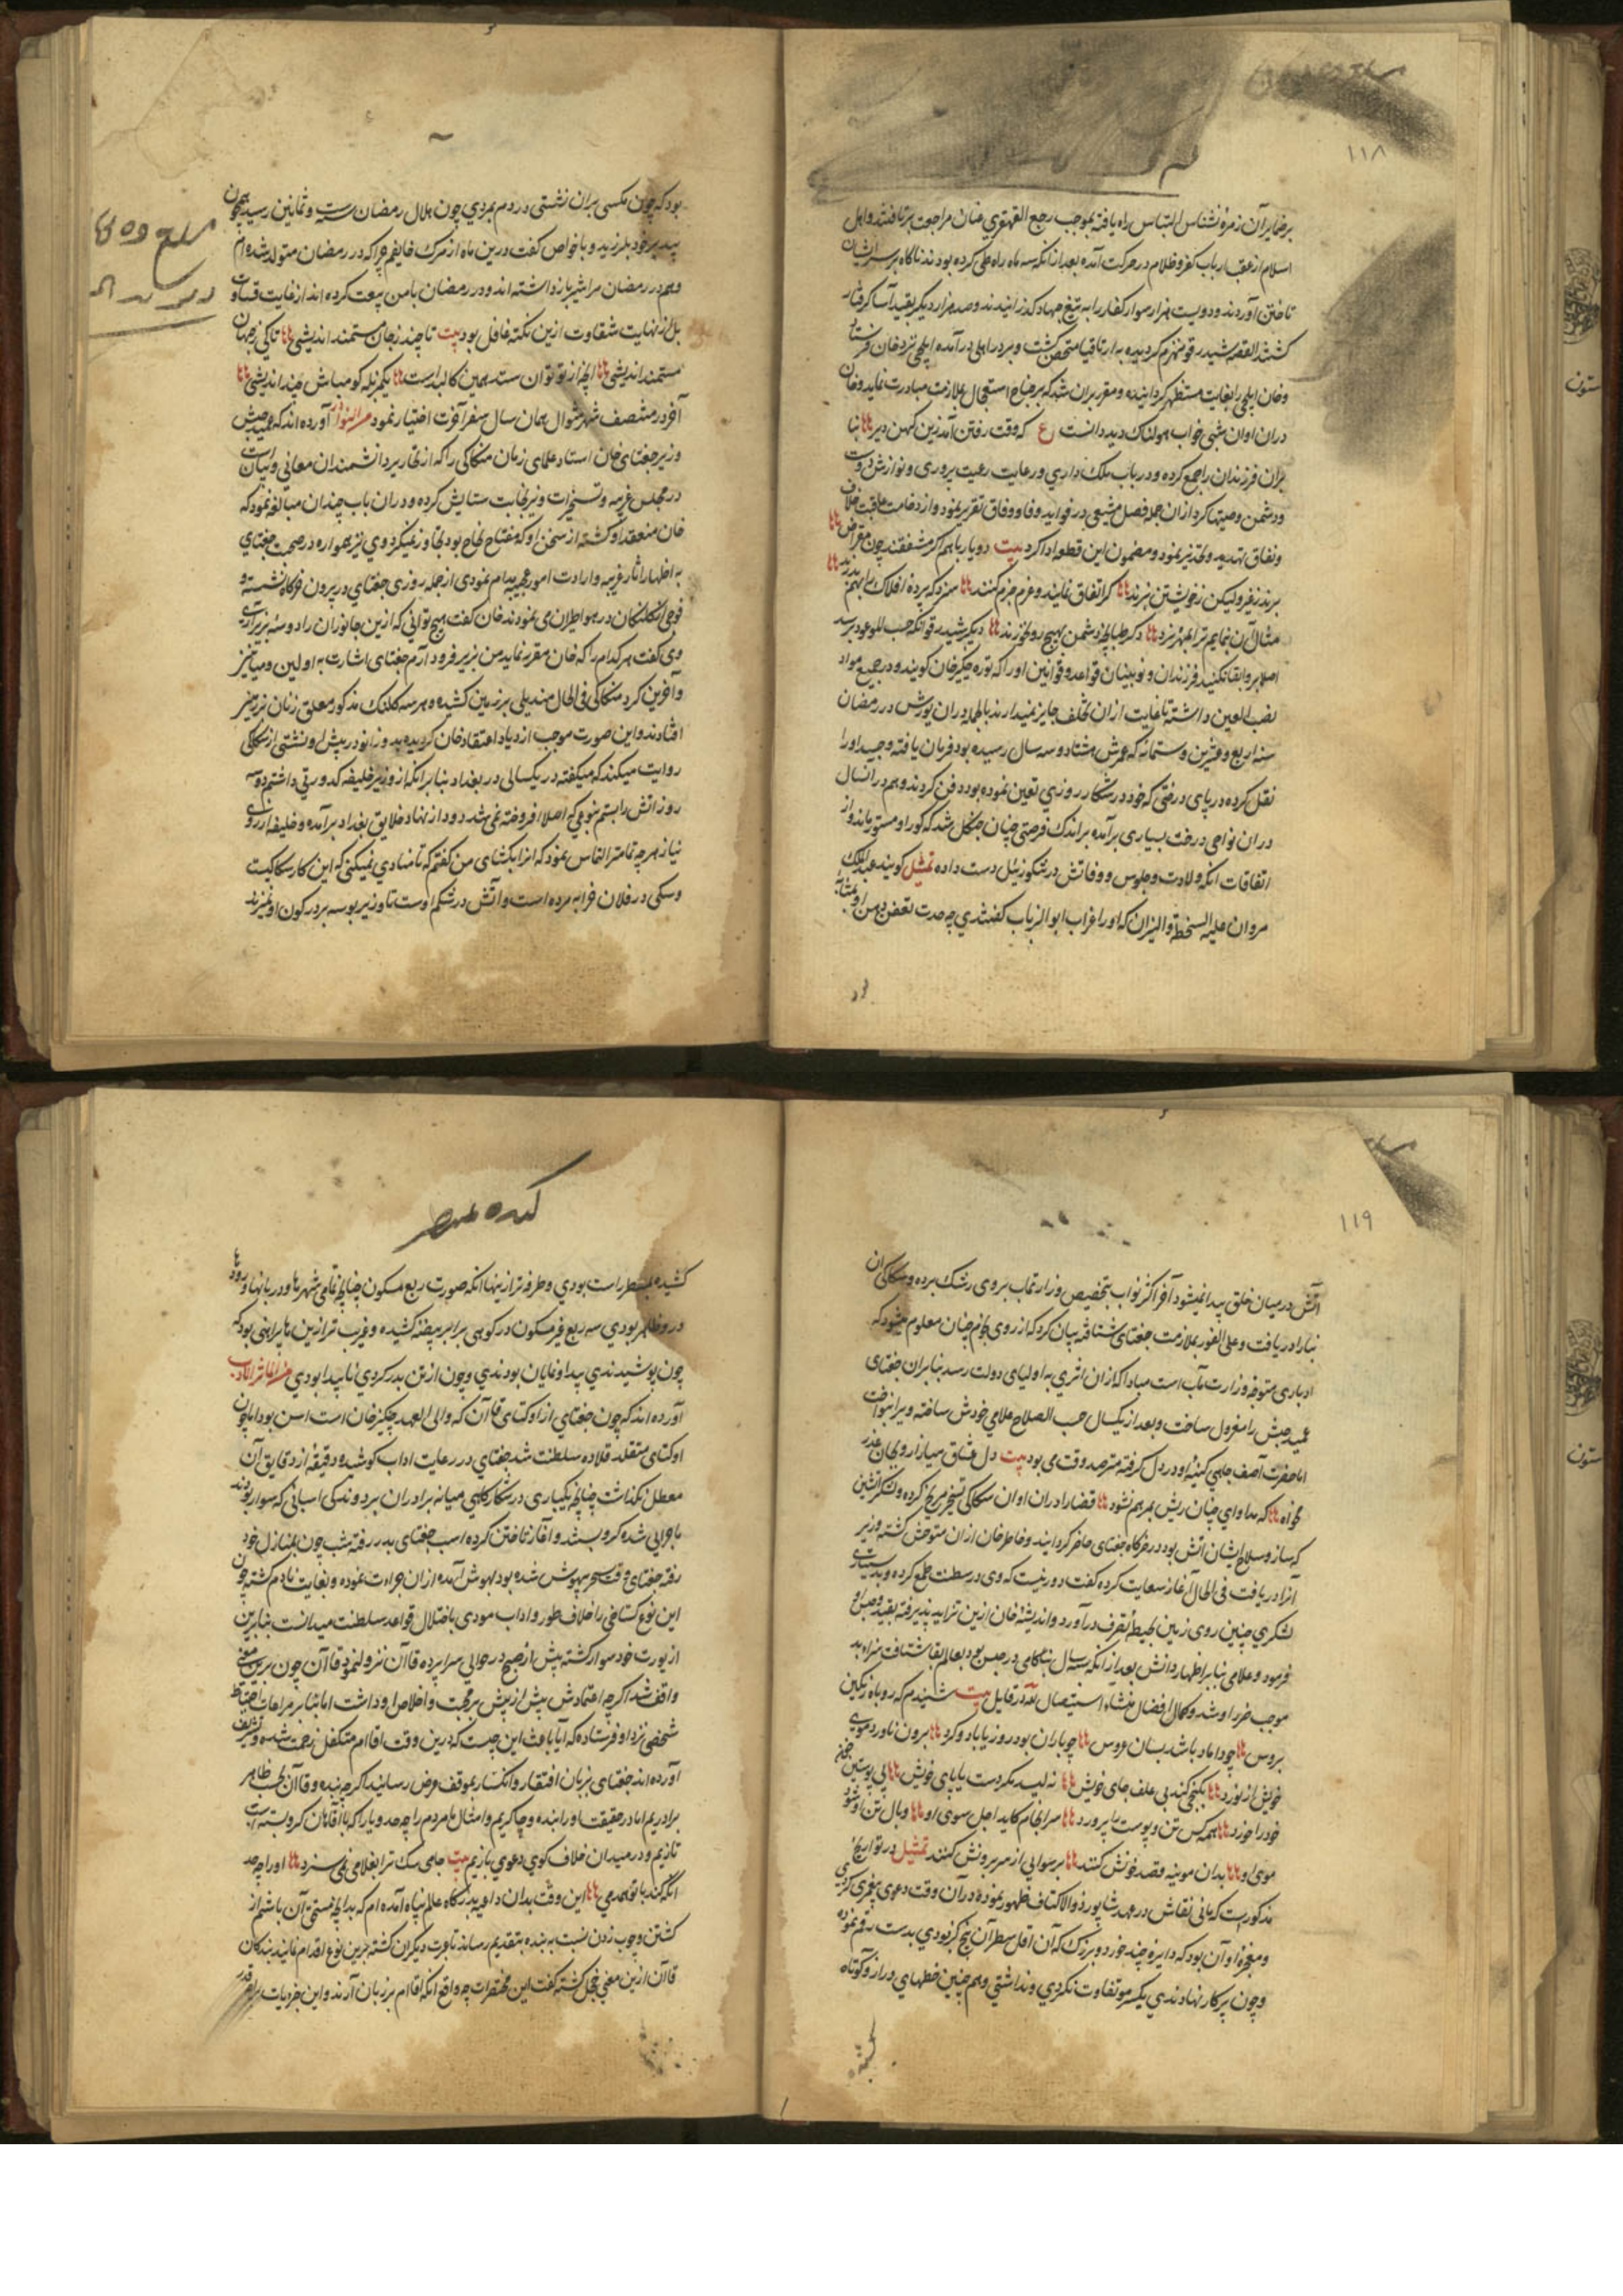 ۱۱۸
برضمایر آن زمرهٔ نشناس التباس راه یافته بموجب رجع القهقری عنان مراجعت برتافتند و اهل
اسلام از عقب ارباب کفر و ظلام در حرکت آمده بعد از آنکه سه ماه راه طی کرده بودند ناگاه بر سر ایشان
تاختن آوردند و دویست هزار سوار کفار را به تیغ جهاد گذرانیدند و صد هزار دیگر بقید آسا گرفتار
کشتند القصه شیدرقو منهزم گردیده به ارتاقیا متحصن گشت و بر در ایلی درآمده ایلچی نزد خان فرستاد
وخان ایلچی را بغایت مستظهر گردانیده و مقرر بران شد که بر جناح استعجال بملازمت مبادرت نماید و خان
دران اوان شبی خواب هولناک دید دانست ع که وقت رفتن آمد زین کهن دیر بنا
بران فرزندان را جمع کرده و در باب ملک داری و رعایت رعیت پروری و نوازش دوست
ودشمن وصیتها کرد ازان جمله فصل مشبعی در فواید وفا و وفاق تقریر نمود و از وخامت عاقبت خلاف
ونفاق تهدید و تحذیر نمود و مضمون این قطعه ادا کرد بیت دو یار با هم اگر مشفقند چون مقراض
برند از غیر ولیکن ز خویشتن نبرند گر اتفاق نمایند و عزم جزم کنند سزد که پردهٔ افلاک را بهم بدرند
مثال آن بنمایم ترا بمهره نرد دیگر شیدرقو آنکه حسب الموعود برسد
اصلا بر وابقا نکنید فرزندان و نوینان قواعد و قوانین او را که توره چنگیزخان گویند و در جمیع مواد
نصب العین داشته تا غایت ازان تخلف جایز نمیدارند بالجمله دران یورش در رمضان
سنه اربع و عشرین و ستمائه که عمرش هشتاد و سه سال رسیده بود فرمان یافته و جسد او را
نقل کرده در پای درختی که خود در شکار روزی تعیین نموده بود دفن کردند و هم در آنسال
دران نواحی درخت بسیاری برآمده براندک فرصتی چنان جنگل شد که گور او مستور ماند و از
اتفاقات آنکه ولادت و جلوس و وفاتش در تنگوزئیل دست داده تمثیل گویند عبدالملک
مروان علیه السخط و النیران که او را اعراب ابوالذباب گفتندی چه حدت تعفن دهن او بمثابه

بود که چون مگسی بران نشستی در دم بمردی چون هلال رمضان سنه ست و ثمانین رسید همچون
بید بر خود بلرزید و با خواص گفت درین ماه از مرگ خایفم چراکه در رمضان متولد شده ام
وهم در رمضان مرا شیر باز داشته اند و در رمضان با من بیعت کرده اند از غایت قساوت
بل از نهایت شقاوت ازین نکته غافل بود بیت تا چند ز جان مستمند اندیشی تا کی ز جهان
مستمند اندیشی آنچه از تو توان ستد همین کالبد است یک مزبله گو مباش چند اندیشی
آخر در منتصف شهر شوال همان سال سفر آخرت اختیار نمود من النوادر آورده اند که عمید حبش
وزیر جغتای خان استاد علمای زمان سکاکی را که از نحاریر دانشمندان معانی و بیان است
در مجلس غریبه و تسخیرات و نیرنجات ستایش کرده و دران باب چندان مبالغه نمود که
خان معتقد او گشته از سخن او که مفتاح نجاح بود تجاوز نمیکرد و وی نیز همواره در صحبت جغتای
به اظهار آثار غریبه و ارادت امور عجیبه اقدام نمودی از جمله روزی جغتای در بیرون خرگاه نشسته و
فوجی از کلنگان در هوا طیران می نمودند خان گفت هیچ توانی که ازین جانوران را دو سه بزیر آری
وی گفت هر کدام را که خان مقرر نماید من بزیر فرود آرم جغتای اشارت به اولین و میانین
و آخرین کرد سکاکی فی الحال مندیلی بر زمین کشیده و هر سه کلنک مذکور معلق زنان بر زمین
افتادند و این صورت موجب ازدیاد اعتقاد خان گردیده بدو زانو در پیش او نشستی از سکاکی
روایت میکند که میگفته در یکسالی در بغداد بنا بر آنکه از وزیر خلیفه کدورتی داشتم دو سه
روز آتش را بستم بنوعی که اصلا افروخته نمی شد دود از نهاد خلایق بغداد برآمده و خلیفه از روی
نیاز هر چه تمامتر التماس نمود که آنرا بگشای من گفتم که تا منادی نمیکنی که این کار سکاکیست
و سگی در فلان خرابه مرده است و آتش در شکم اوست تا وزیر بوسه بر در کون او نمیزند

۱۱۹
آتش در میان خلق پیدا نمیشود آخر اکثر نواب بتخصیص وزارتمآب بر وی رشک برده و سکاکی آن
نبا را دریافت و علی الفور بملازمت جغتای شتافته بیان کرد که از روی نجوم چنان معلوم میشود که
ادباری متوجه وزارت مآب است مبادا که ازان اثری به اولیای دولت رسد بنابران جغتای
عمید حبش را معزول ساخت و بعد از یکسال حسب الصلاح علامی خودش ساخته و ویرا بنواخت
اما حضرت آصف جاهی کینهٔ او در دل گرفته مترصد وقت می بود بیت دل عشاق میازار و بجان عذر
بخواه که مداوای چنان ریش بمرهم نشود قضا را دران اوان سکاکی تسخیر مریخ کرده و لشکر آتشین
که ساز و سلاح ایشان آتش بود در خرگاه جغتای حاضر گردانید و خاطر خان ازان متوحش گشته وزیر
آنرا دریافت فی الحال آغاز سعایت کرده گفت دور نیست که وی در سلطنت طمع کرده و بدستیاری
لشکری چنین روی زمین بحیطهٔ تصرف درآورد و اندیشهٔ خان ازین تزاید پذیرفته بقید و حبس او
فرمود و علامی بنا بر اظهار دانش بعد از آنکه سه سال بناکامی در حبس بود بعالم بقا شتافت
موجب ضرر او شد و کمال افضال منشاء استیصال لله در قایل بیت شنیدم که روباه رنگین
بروس چو داماد باشد بسان عروس چو باران بود روز یا باد و گرد برون ناورد موی
خویش از نورد بکنجی کند بی علف جای خویش نه لیسد مگر دست یا پای خویش پی پوستین
خود را خورد همه کس تن و پوست را پرورد سرانجام کاید اجل سوی او وبال تن او شود
موی او بدان موینه قصد خونش کنند برسوایی از سر برونش کنند تمثیل در تواریخ
مذکور است که مانی نقاش در عهد شاپور ذوالاکتاف ظهور نموده در آن وقت دعوی پیغمبری کردی
و معجزهٔ او آن بود که دایرهٔ چند خورد و بزرگ که آن اقل سطر آن پنج گز بودی بدست رقم نمودی
و چون پرکار نهادندی یکسر مو تفاوت نکردی و نداشتی و هم چنین خطهای دراز و کوتاه

کشیده بمسطر راست بودی و طرفه تر از ینها آنکه صورت ربع مسکون چنانچه تمامی شهرها و دریاها و رودها
درو ظاهر بودی سه ربع غیر مسکون در کوهی برابر بیضه کشیده و غریب تر از ین ها پیراهنی بود که
چون پوشیدندی پیدا و نمایان بودندی و چون از تن بدر کردی ناپیدا بودی
آورده اند که چون جغتای از اوکتای قاآن که والی العهد چنگیزخان است اسن بود اما چون
اوکتای متقلد قلاده سلطنت شد جغتای در رعایت اداب کوشیده دقیقهٔ از دقایق آن
معطل نگذاشت چنانچه یکباری در شکارگاهی میانه برادران بر دوندگی اسپانی که سوار بودند
ماجرایی شده گرو بستند و آغاز تاختن کرده اسب جغتای بدر رفته شب چون بمنازل خود
رفته جغتای وقت سحر بیهوش شده بود بهوش آمده ازان جراءت نموده و بغایت نادم گشته چون
این نوع گستاخی را خلاف طور و اداب مودی باختلال قواعد سلطنت میدانست بنابرین
از یورت خود سوار گشته پیش از صبح در حوالی سراپرده قاآن نزول نمود قاآن چون برین معنی
واقف شد اگرچه اعتمادش پیش از پیش بر محبت و اخلاص او داشت اما بنا بر مراعات احتیاط
شخصی نزد او فرستاده که آیا باعث این چیست که درین وقت اقاام متکفل زحمت شده و تشریف
آورده اند جغتای بزبان افتقار و انکسار بموقف عرض رسانید اگر چه بنده و قاآن بحسب ظاهر
برادریم اما در حقیقت او را بنده و چاکریم و امثال ما مردم را چه حد و یارا که با آقایان گرو بسته اسب
تازیم و در میدان خلاف گوی دعوی بازیم بیت جامی سگ ترا بغلامی نمی سزد او را چه حد
آنکه کند با تو همدمی این وقت بدان داعیه بدرگاه عالم پناه آمده ام که بدانچه مستحق آن باشم از
کشتن و چوب زدن نسبت به بنده بتقدیم رسانند تا عبرت دیگران گشته برین نوع اقدام نمایند بندگان
قاآن ازین معنی خجل گشته گفت این محقرات چه واقع آنکه اقاام بر زبان آرند و این جزویات را چه قدر